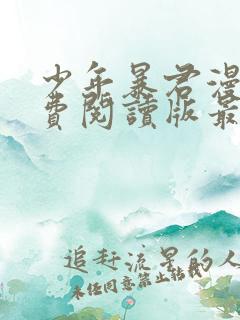 少年暴君漫
费閱讀版最
追赶流星的人
未经同意禁止转载